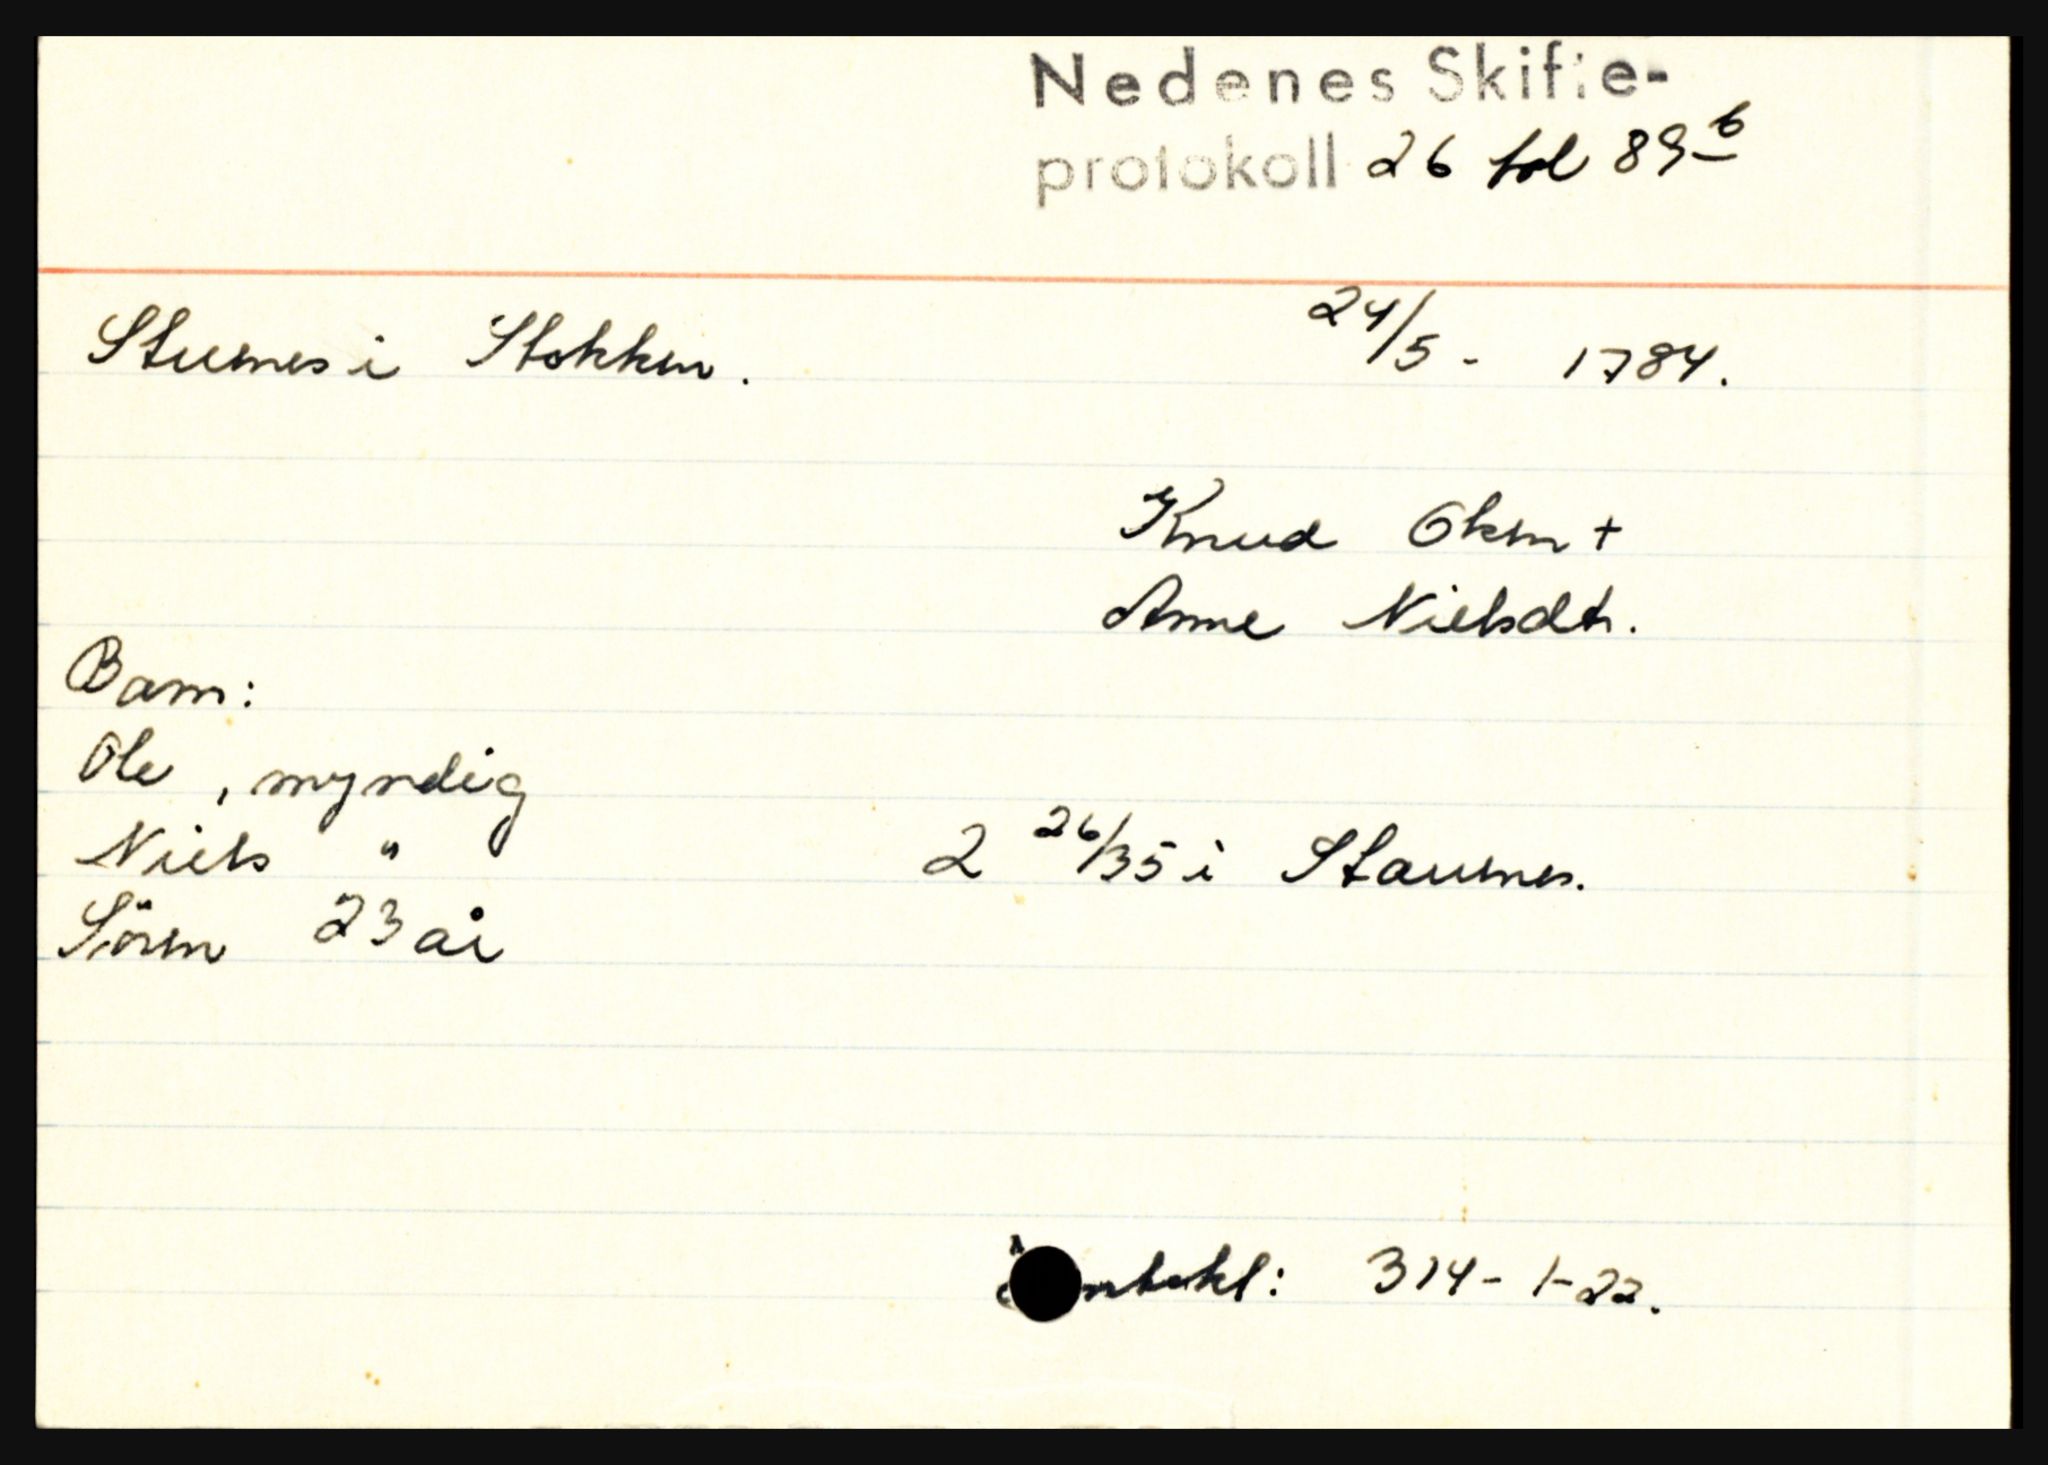 Nedenes Skifte-
protokoll 26 fol 89 b
Stuenes i Stokken. 24/5 - 1784.
Knud Olsen +
Anne Nielsdtr.
Barn:
Ole, myndig
Niels " 2 26/35 i Stauenes.
Sören 23 år
314-1-22.